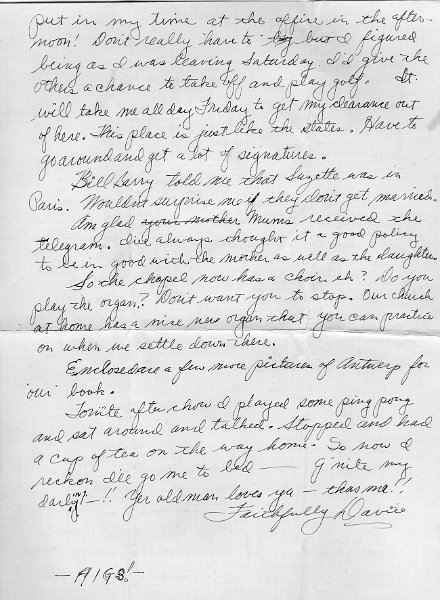 put in my time at the office in the after-
noon! Don't really have to but I figured
being as I was leaving Saturday I'd give the
others a chance to take off and play golf. It
will take me all day Friday to get my clearance out
of here. This place is just like the states. Have to
go around and get a lot of signatures.
Bill Barry told me that Suzette was in
Paris. Wouldn't surprise me if they don't get married.
Am glad your mother Mums received the
telegram. I've always thought it a good policy
to be in good with the mother as well as the daughter.
So the chapel now has a choir, eh? Do you
play the organ? Don't want you to stop. Our church
at home has a nice new organ that you can practice
on when we settle down there.
Enclosed are a few more pictures of Antwerp for
"our" book.
Tonite after chow I played some ping pong
and sat around and talked. Stopped and had
a cup of tea on the way home. So now I
reckon I'll go me to bed — G'nite my
darlyin' — !! Yer old man loves ya — thas ma!!
Faithfully Davie
— AIGS! —